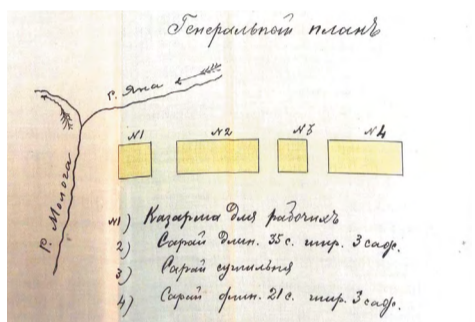 Генеральной планъ
р. Яна
р. Молога
№1 №2 №3 №4
№1) Казарма для рабочихъ
2) Сарай длин. 35 с. шир. 3 саж.
3) Сарай сушильня
4) Сарай длин. 21 с. шир. 3 саж.